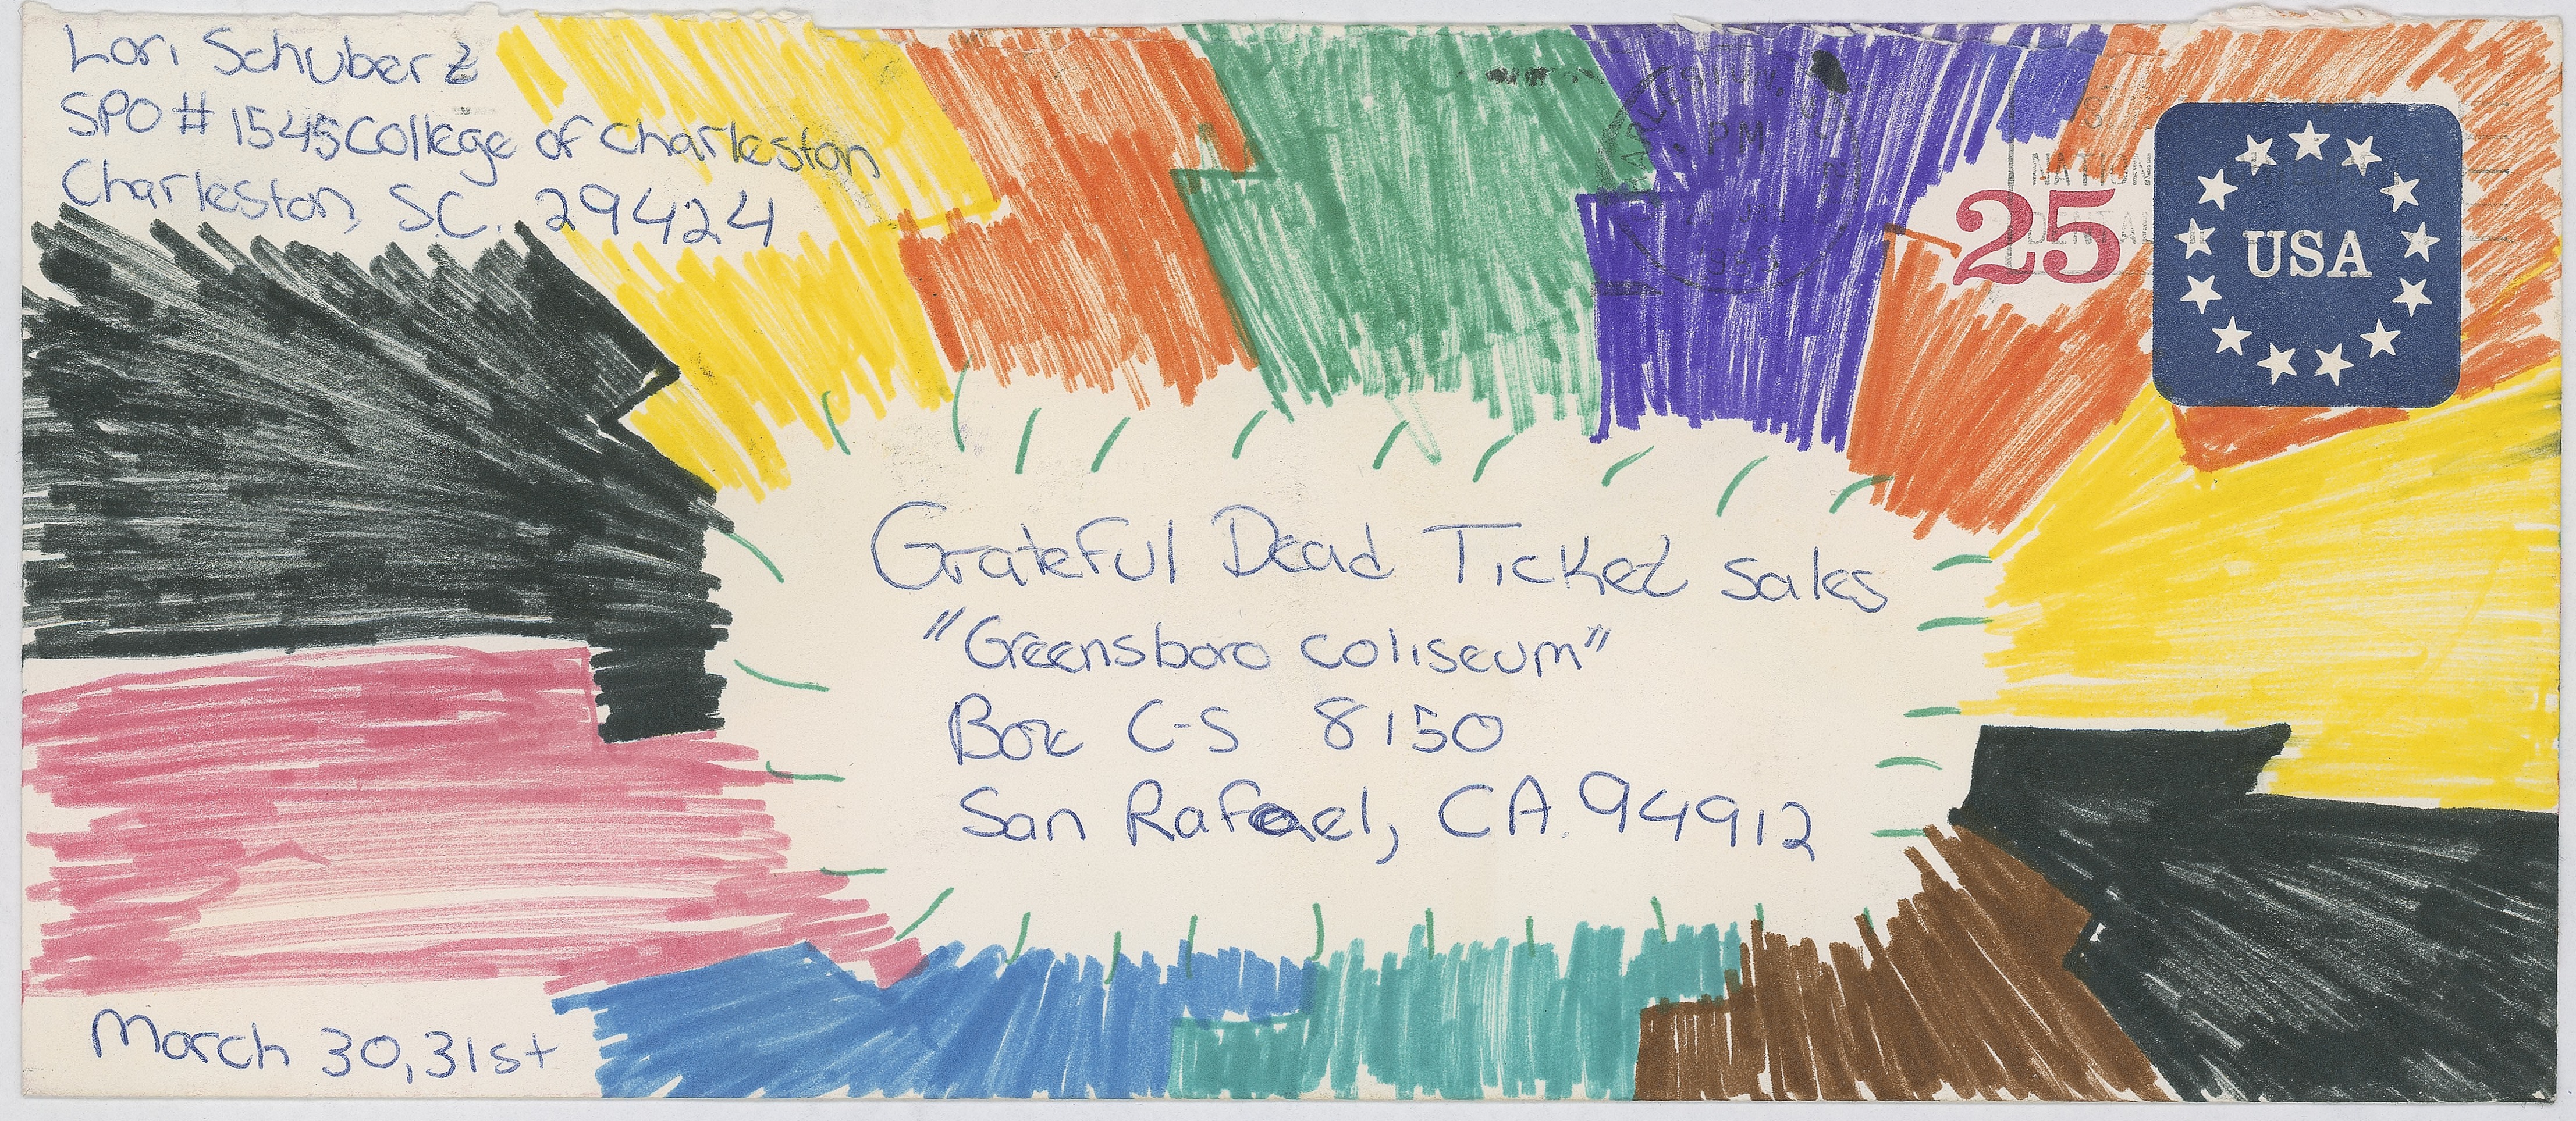 Lori Schubert
SPO # 1545 College of Charleston
Charleston, S.C. 29424
PM
1989
NATION
DENTAL
25
USA
Grateful Dead Ticket Sales
"Greensboro Coliseum"
Box C-S 8150
San Rafael, CA. 94912
March 30, 31st